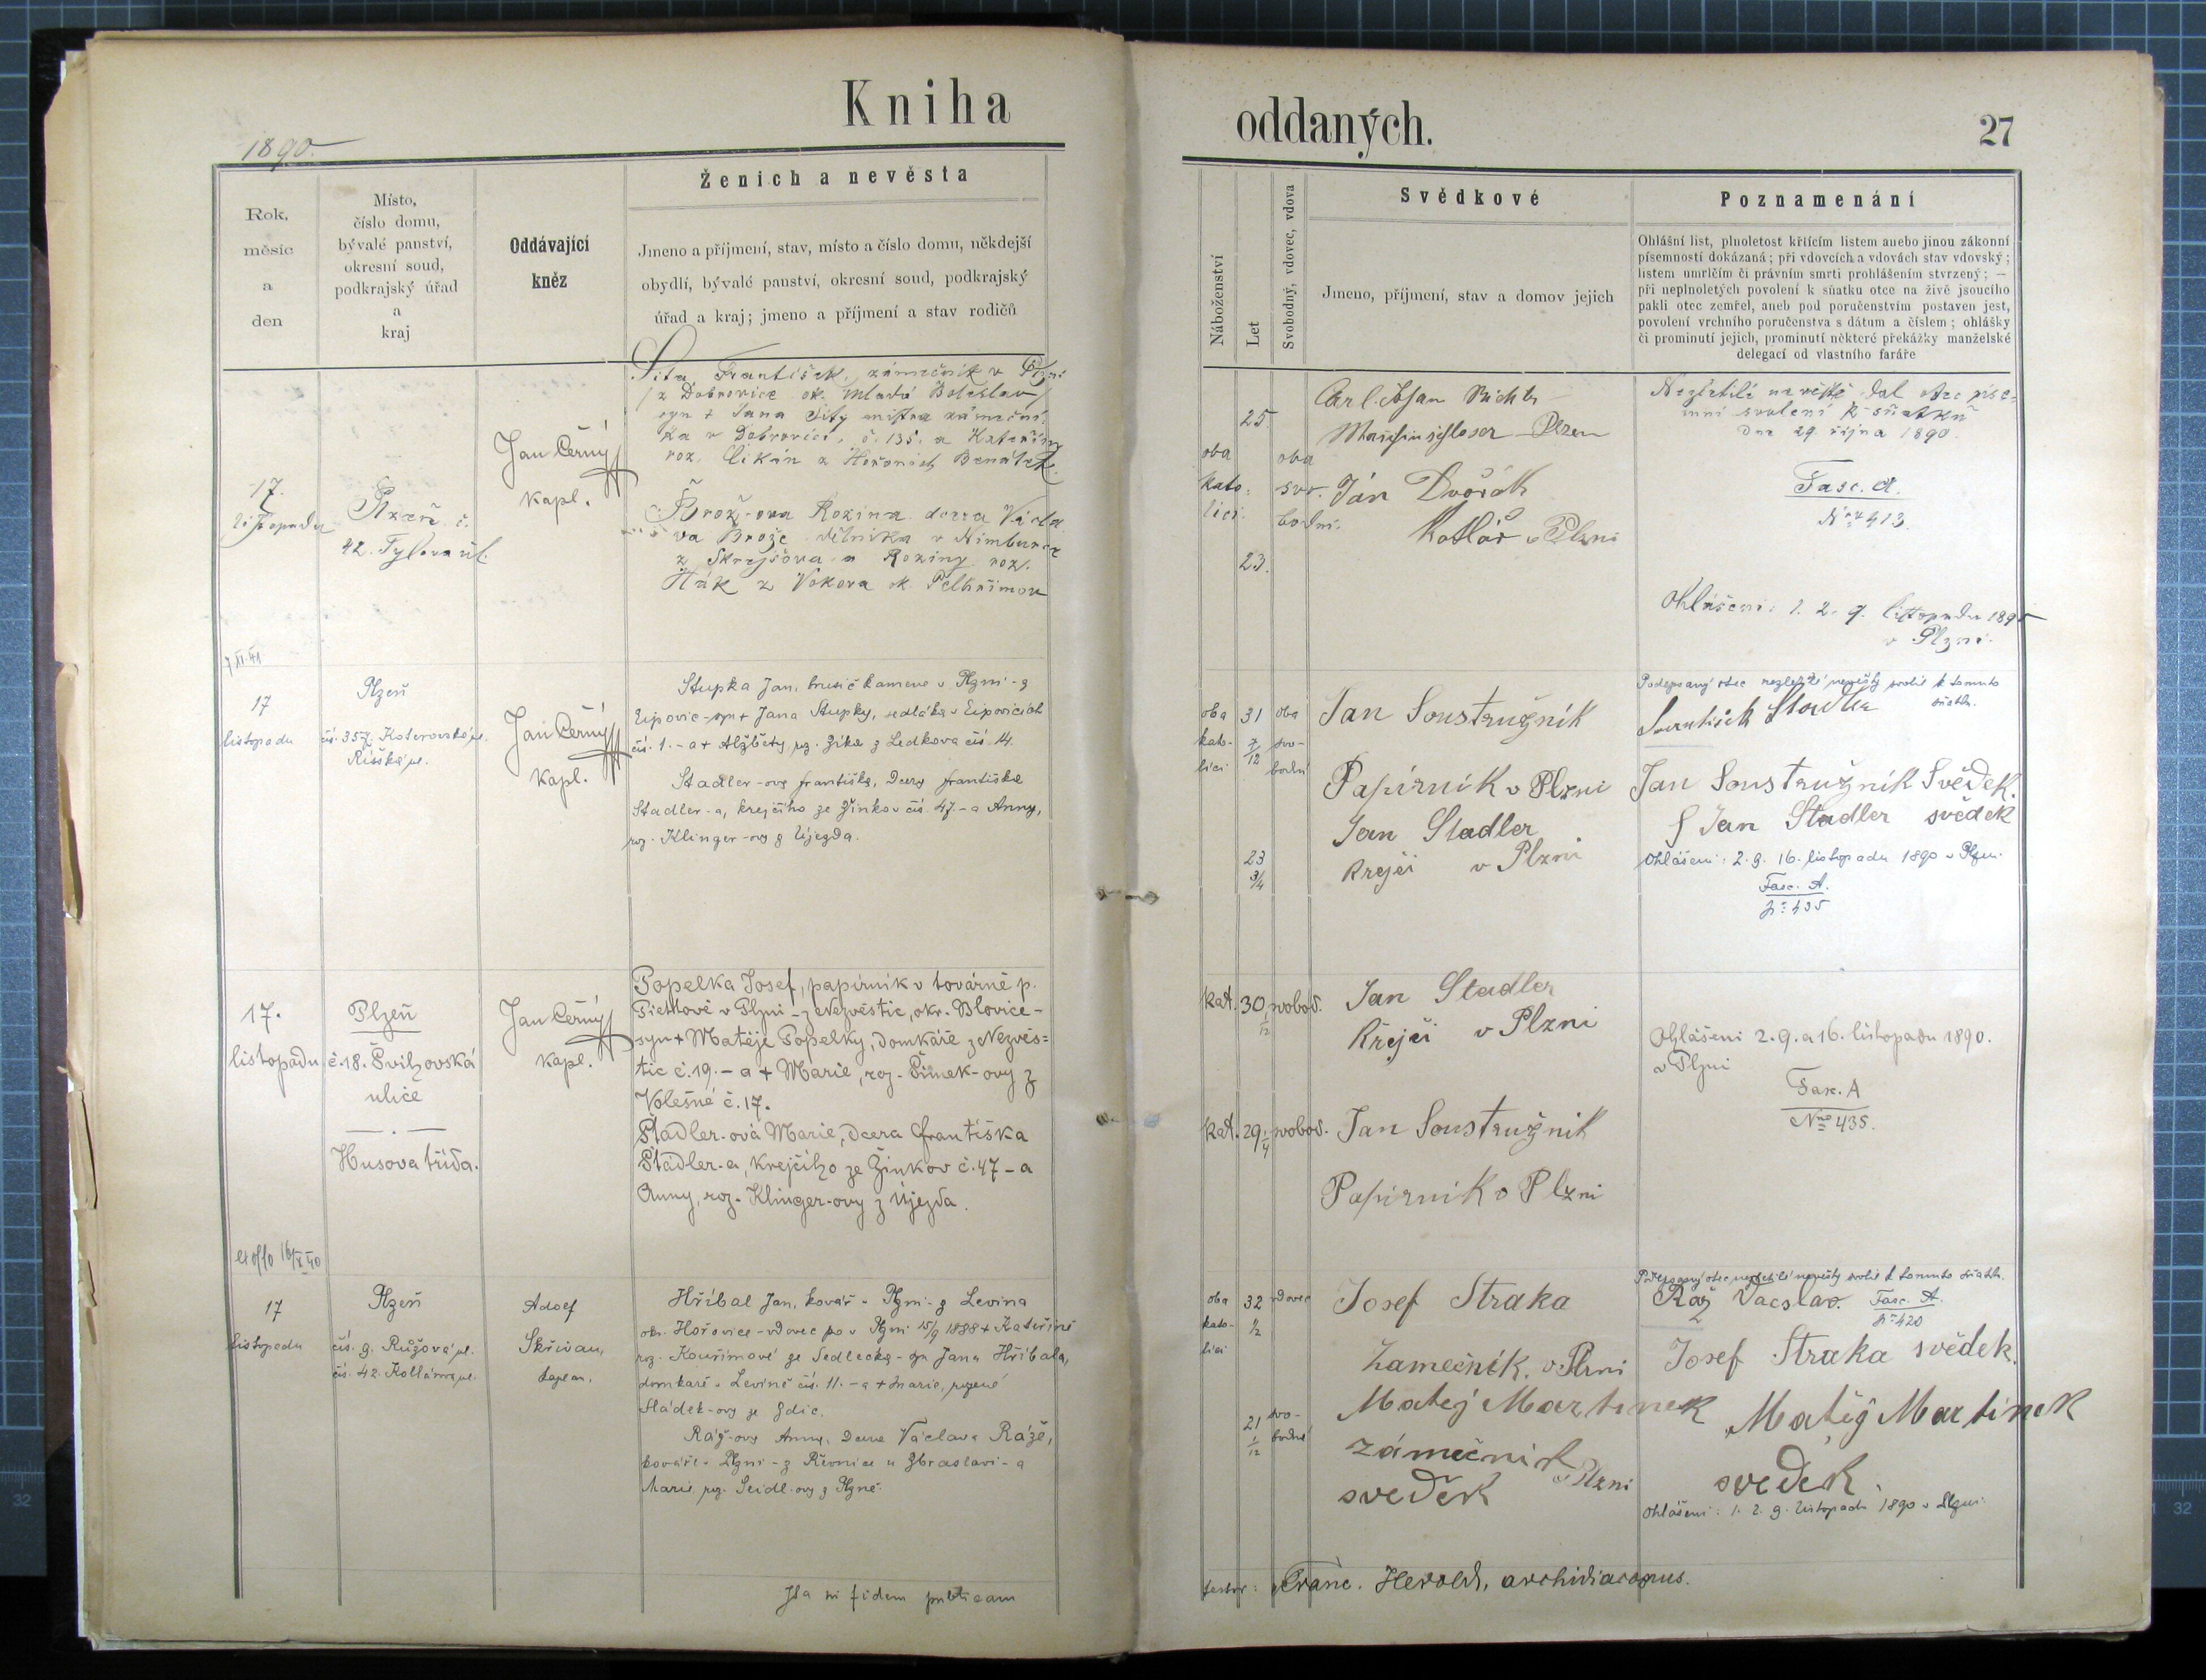 Kniha
1890.
Ženich a nevěsta
Rok,
měsíc
a
den
Místo,
číslo domu,
bývalé panství,
okresní soud,
podkrajský úřad
a
kraj
Oddávající
kněz
Jmeno a příjmení, stav, místo a číslo domu, někdejší
obydlí, bývalé panství, okresní soud, podkrajský
úřad a kraj; jmeno a příjmení a stav rodičů
17.
listopadu
Plzeň č.
42. Tylova ul.
Jan Černý
kapl.
Sita František, zámečník v Plzni
z Dobrovice ok. Mladá Boleslav
syn + Jana Sity mistra zámeční
ka v Dobrovici, č. 135. a Kateřiny
roz. Cikán z Benátek.
Brož-ova Rozina dcera Václa
va Brože dělníka v Nimburce
z a Roziny roz.
z Vokova ok. Pelhřimov
7/XI.41
17
listopadu
Plzeň
čís. 357. Koterovská ul.
Říšská ul.
Jan Černý
kapl.
Stupka Jan, brusič kamene v Plzni - z
Ejpovic - syn + Jana Stupky, sedláka v Ejpovicích
čís. 1. - a + Alžběty roz. Zíka z Ledkova čís. 14.
Stadler-ova Františka, dcera Františka
Stadler-a, krejčího ze Žinkov čís. 47. - a Anny,
roz. Klinger-ovy z Újezda.
17.
listopadu
Plzeň
č. 18. Švihovská
ulice
Husova třída.
Jan Černý
kapl.
Popelka Josef, papírník v továrně p.
Piettově v Plzni - z Nezvěstic, okr. Blovice -
syn + Matěje Popelky, domkáře z Nezvěs=
tic č. 19. - a + Marie, roz. Šimek-ovy z
Volešné č. 17.
Stadler-ová Marie, dcera Františka
Stadler-a, krejčího ze Žinkov č. 47 - a
Anny, roz. Klinger-ovy z Újezda.
16/X 40
17
listopadu
Plzeň
čís. 9. Růžová ul.
čís. 42. Kollárova ul.
Adolf
Skřivan,
kaplan.
Hříbal Jan, kovář v Plzni - z Levína
okr. Hořovice - vdovec po v Plzni 15/9 1888 + Kateřině
roz. Kouřimové ze Sedlecka - syn Jana Hříbala,
domkáře v Levíně čís. 11. - a + Marie, rozené
Sládek-ovy ze Zdic.
Ráž-ova Anna, dcera Václava Ráže,
kováře v Plzni - z Řevnice u Zbraslavi - a
Marie roz. Seidl-ovy z Plzně.
Ita in fidem publicam
oddaných.
27
Náboženství
Let
Svobodný, vdovec, vdova
Svědkové
Jmeno, příjmení, stav a domov jejich
Poznamenání
Ohlášní list, plnoletost křticím listem anebo jinou zákonní
písemností dokázaná; při vdovcích a vdovách stav vdovský;
listem umrlčím či právním smrti prohlášením stvrzený; —
při neplnoletých povolení k sňatku otce na živě jsoucího
pakli otec zemřel, aneb pod poručenstvím postaven jest,
povolení vrchního poručenstva s dátum a číslem; ohlášky
či prominutí jejich, prominutí některé překážky manželské
delegací od vlastního faráře
oba
kato-
lici.
25.
23.
oba
svo-
bodni.
Carl
Maschinschlosser Plzen
Jan Dvořák
Kotlář v Plzni
Nezletilé nevěstě dal otec píse-
mní svolení k sňatku
dne 29. října 1890.
Fasc. A.
No 413.
Ohlášeni: 1. 2. 9. listopadu 1890
v Plzni.
oba
kato-
lici
31
7/12
23
3/4
oba
svo-
bodni
Jan Soustružník
Papírník v Plzni
Jan Stadler
Krejčí v Plzni
Podepsaný otec nezletilé nevěsty svolil k tomuto
sňatku.
František
Jan Soustružník Svědek.
Jan Stadler svědek
Ohlášeni: 2. 9. 16. listopadu 1890 v Plzni.
Fasc. A.
No 435
kat. 30 1/12 svobod.
Jan Stadler
Krejčí v Plzni
kat. 29 1/4 svobod.
Jan Soustružník
Papírník v Plzni
Ohlášeni 2. 9. a 16. listopadu 1890.
v Plzni
Fasc. A
No 435.
oba
kato-
lici
32
1/2
vdovec
21
1/12
svo-
bodná
Josef Straka
Zamečník. v Plzni
Matěj Martinek
zámečník
v Plzni
svědek
Podepsaný otec nezletilé nevěsty svolil k tomuto sňatku.
Ráž Vacslav. Fasc. A.
No 420
Josef Straka svědek.
Matěj Martinek
svědek.
Ohlášeni: 1. 2. 9. listopadu 1890 v Plzni.
testor: Franc. Herold, archidiaconus.